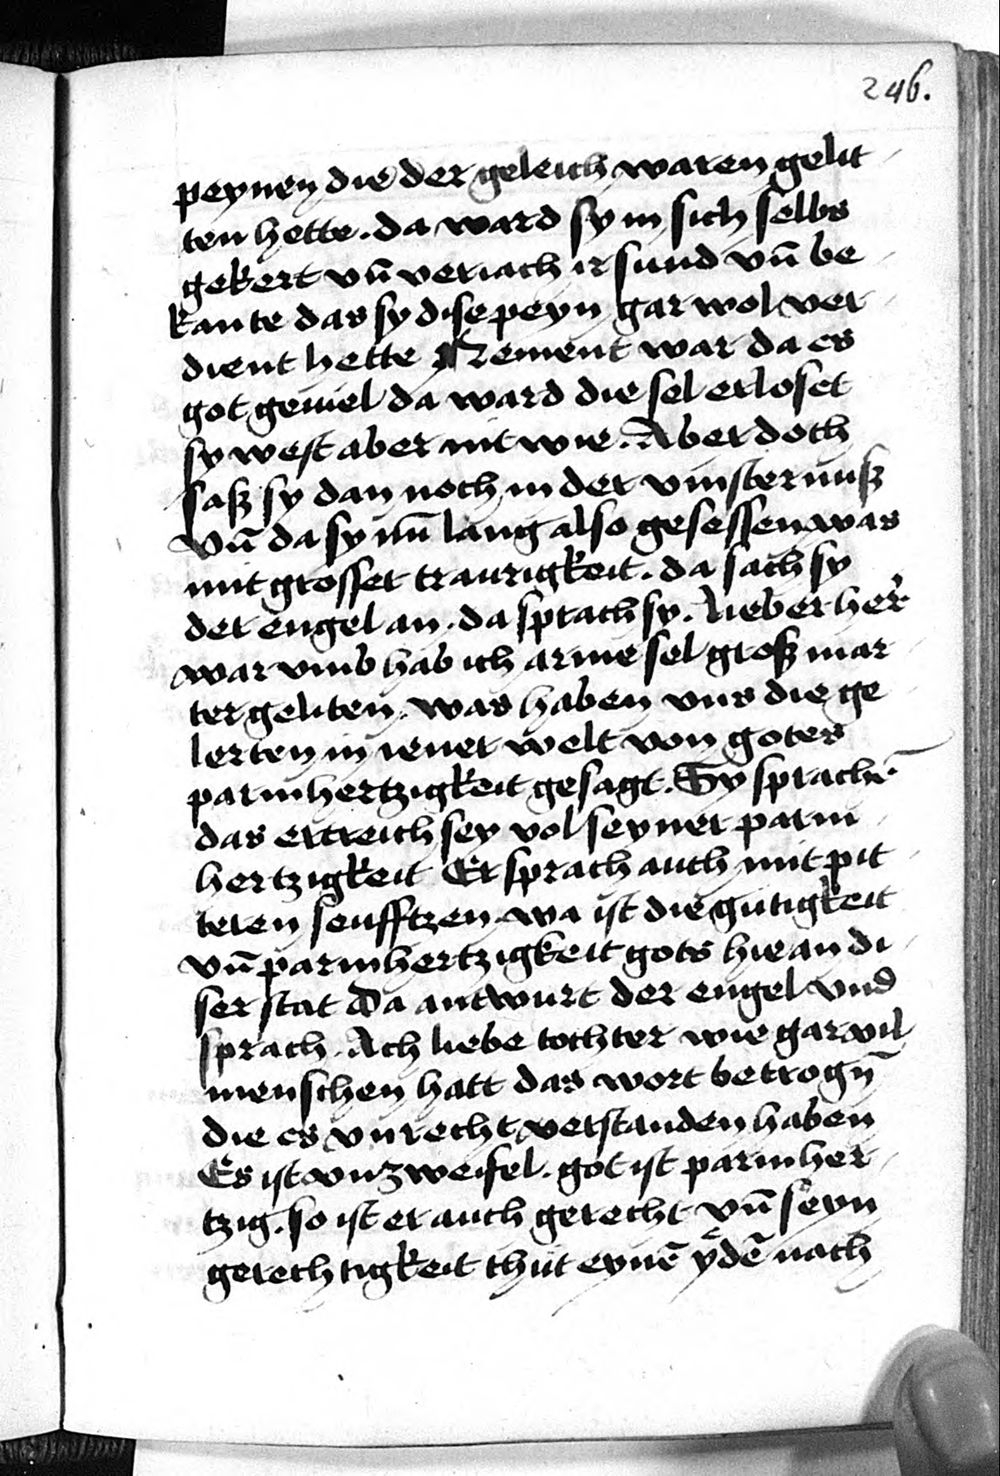 246.
peynen die der geleich waren gelit
ten hette. da ward sy in sich selbs
gekert vn̄ veriach ir sund vn̄ be
kante das sy dise peyn gar wol ver
dient hette Nement war da es
got geuiel da ward die sel erloset
sy west aber nit wie. Aber doch
saß sy dan noch in der vinsternuß
Vn̄ da sy nū lang also gesessen was
mit grosser traurigkeit. da sach sy
der engel an. da sprach sy. Lieber her
war vmb hab ich arme sel groß mar
ter geliten. was haben vns die ge
lerten in iener welt von gotes
parmhertzigkeit gesagt. Sy sprachē
das ertreich sey vol seyner parm
hertzigkeit Er sprach auch mit pit
teren seufftzen wa ist die gutigkeit
vn̄ parmhertzigkeit gots hie an di
ser stat Da antwurt der engel vnd
sprach. Ach liebe tochter wie gar vil
menschen hatt das wort betrogn̄
die es vnrecht verstanden haben
Es ist vnzweifel. got ist parmher
tzig. so ist er auch gerecht vn̄ seyn
gerechtigkeit thut eynē ydē nach